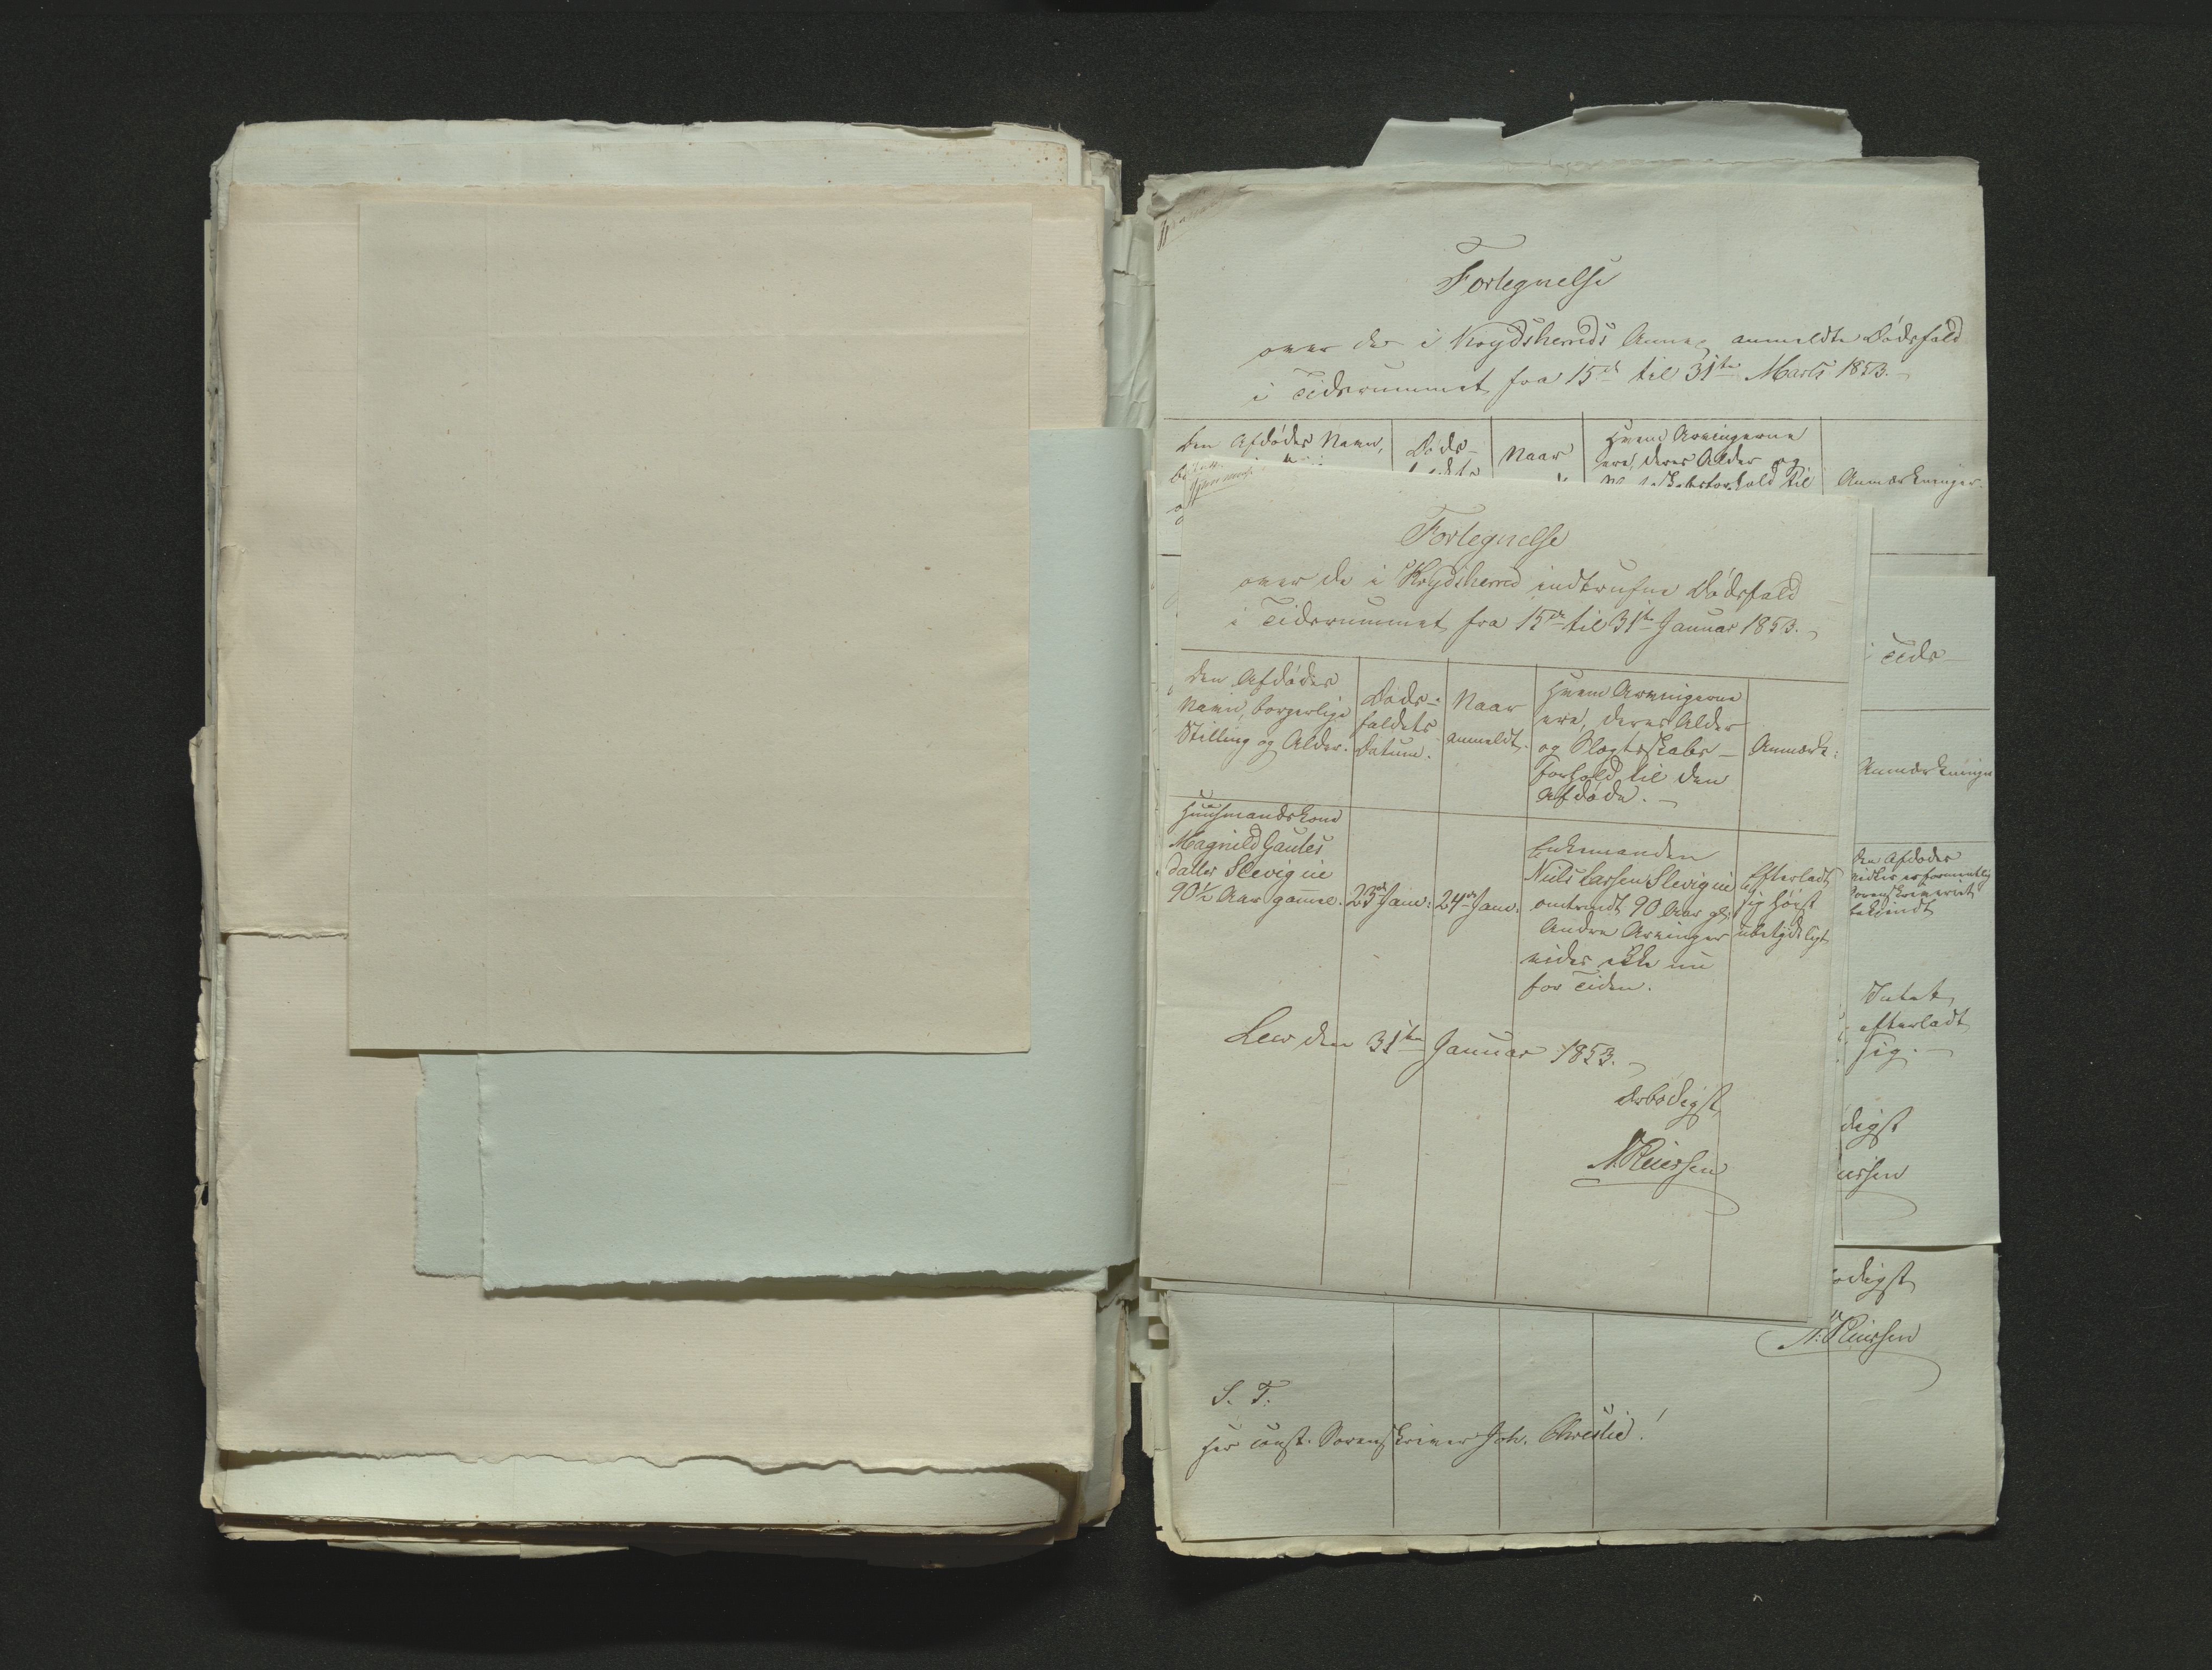 Fortegnelse
over de i Krydsherreds Annex anmeldte Dødsfald
i Tidsrummet fra 15de til 31te Marts 1853.
Den Afdødes Navn,
Døds-
Naar
Hvem Arvingerne
ere, deres Alder og
Slægtskabsforhold til
Anmærkninger.
Fortegnelse
over de i Krydsherred indtrufne Dødsfald
i Tidsrummet fra 15de til 31te Januar 1853.
Den Afdødes
Navn, borgerlige
Stilling og Alder.
Døds-
faldets
Datum.
Naar
anmeldt.
Hvem Arvingerne
ere, deres Alder
og Slægtskabs-
Forhold til den
Afdøde.
Anmærk:
Huusmandskone
Magnild Gautes
datter Slevigeie
90½ Aar gammel.
23de Janu:
24de Janu:
Enkemanden
Niels Larsen Slevigeie
omtrendt 90 Aar gl:
Andre Arvinger
vides ikke nu
for Tiden.
Efterladt
sig høist
ubetydeligt
Lew den 31te Januar 1853.
Ærbødigst
i Tids-
Anmærkninger
den Afdødes
bekjendt
Intet
efterladt
sig.
digst
ødigst
S. T.
Hr const. Sorenskriver Joh. Christie!